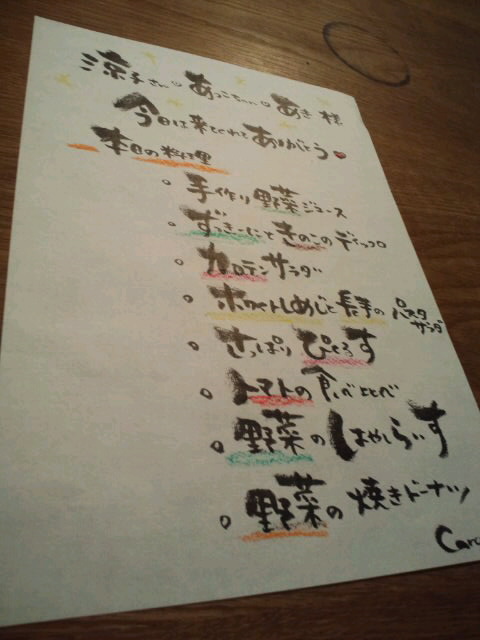 涼子さん。あっこちゃん。あき 様
今日は来てくれて ありがとう
本日の料理
。手作り野菜ジュース
。ずっきーにと きのこの ディップ
。カロテンサラダ
。ホワイトしめじと長芋の パスタサラダ
。さっぱり ぴくるす
。トマトの食べ比べ
。野菜の はやしらいす
。野菜の 焼きドーナツ